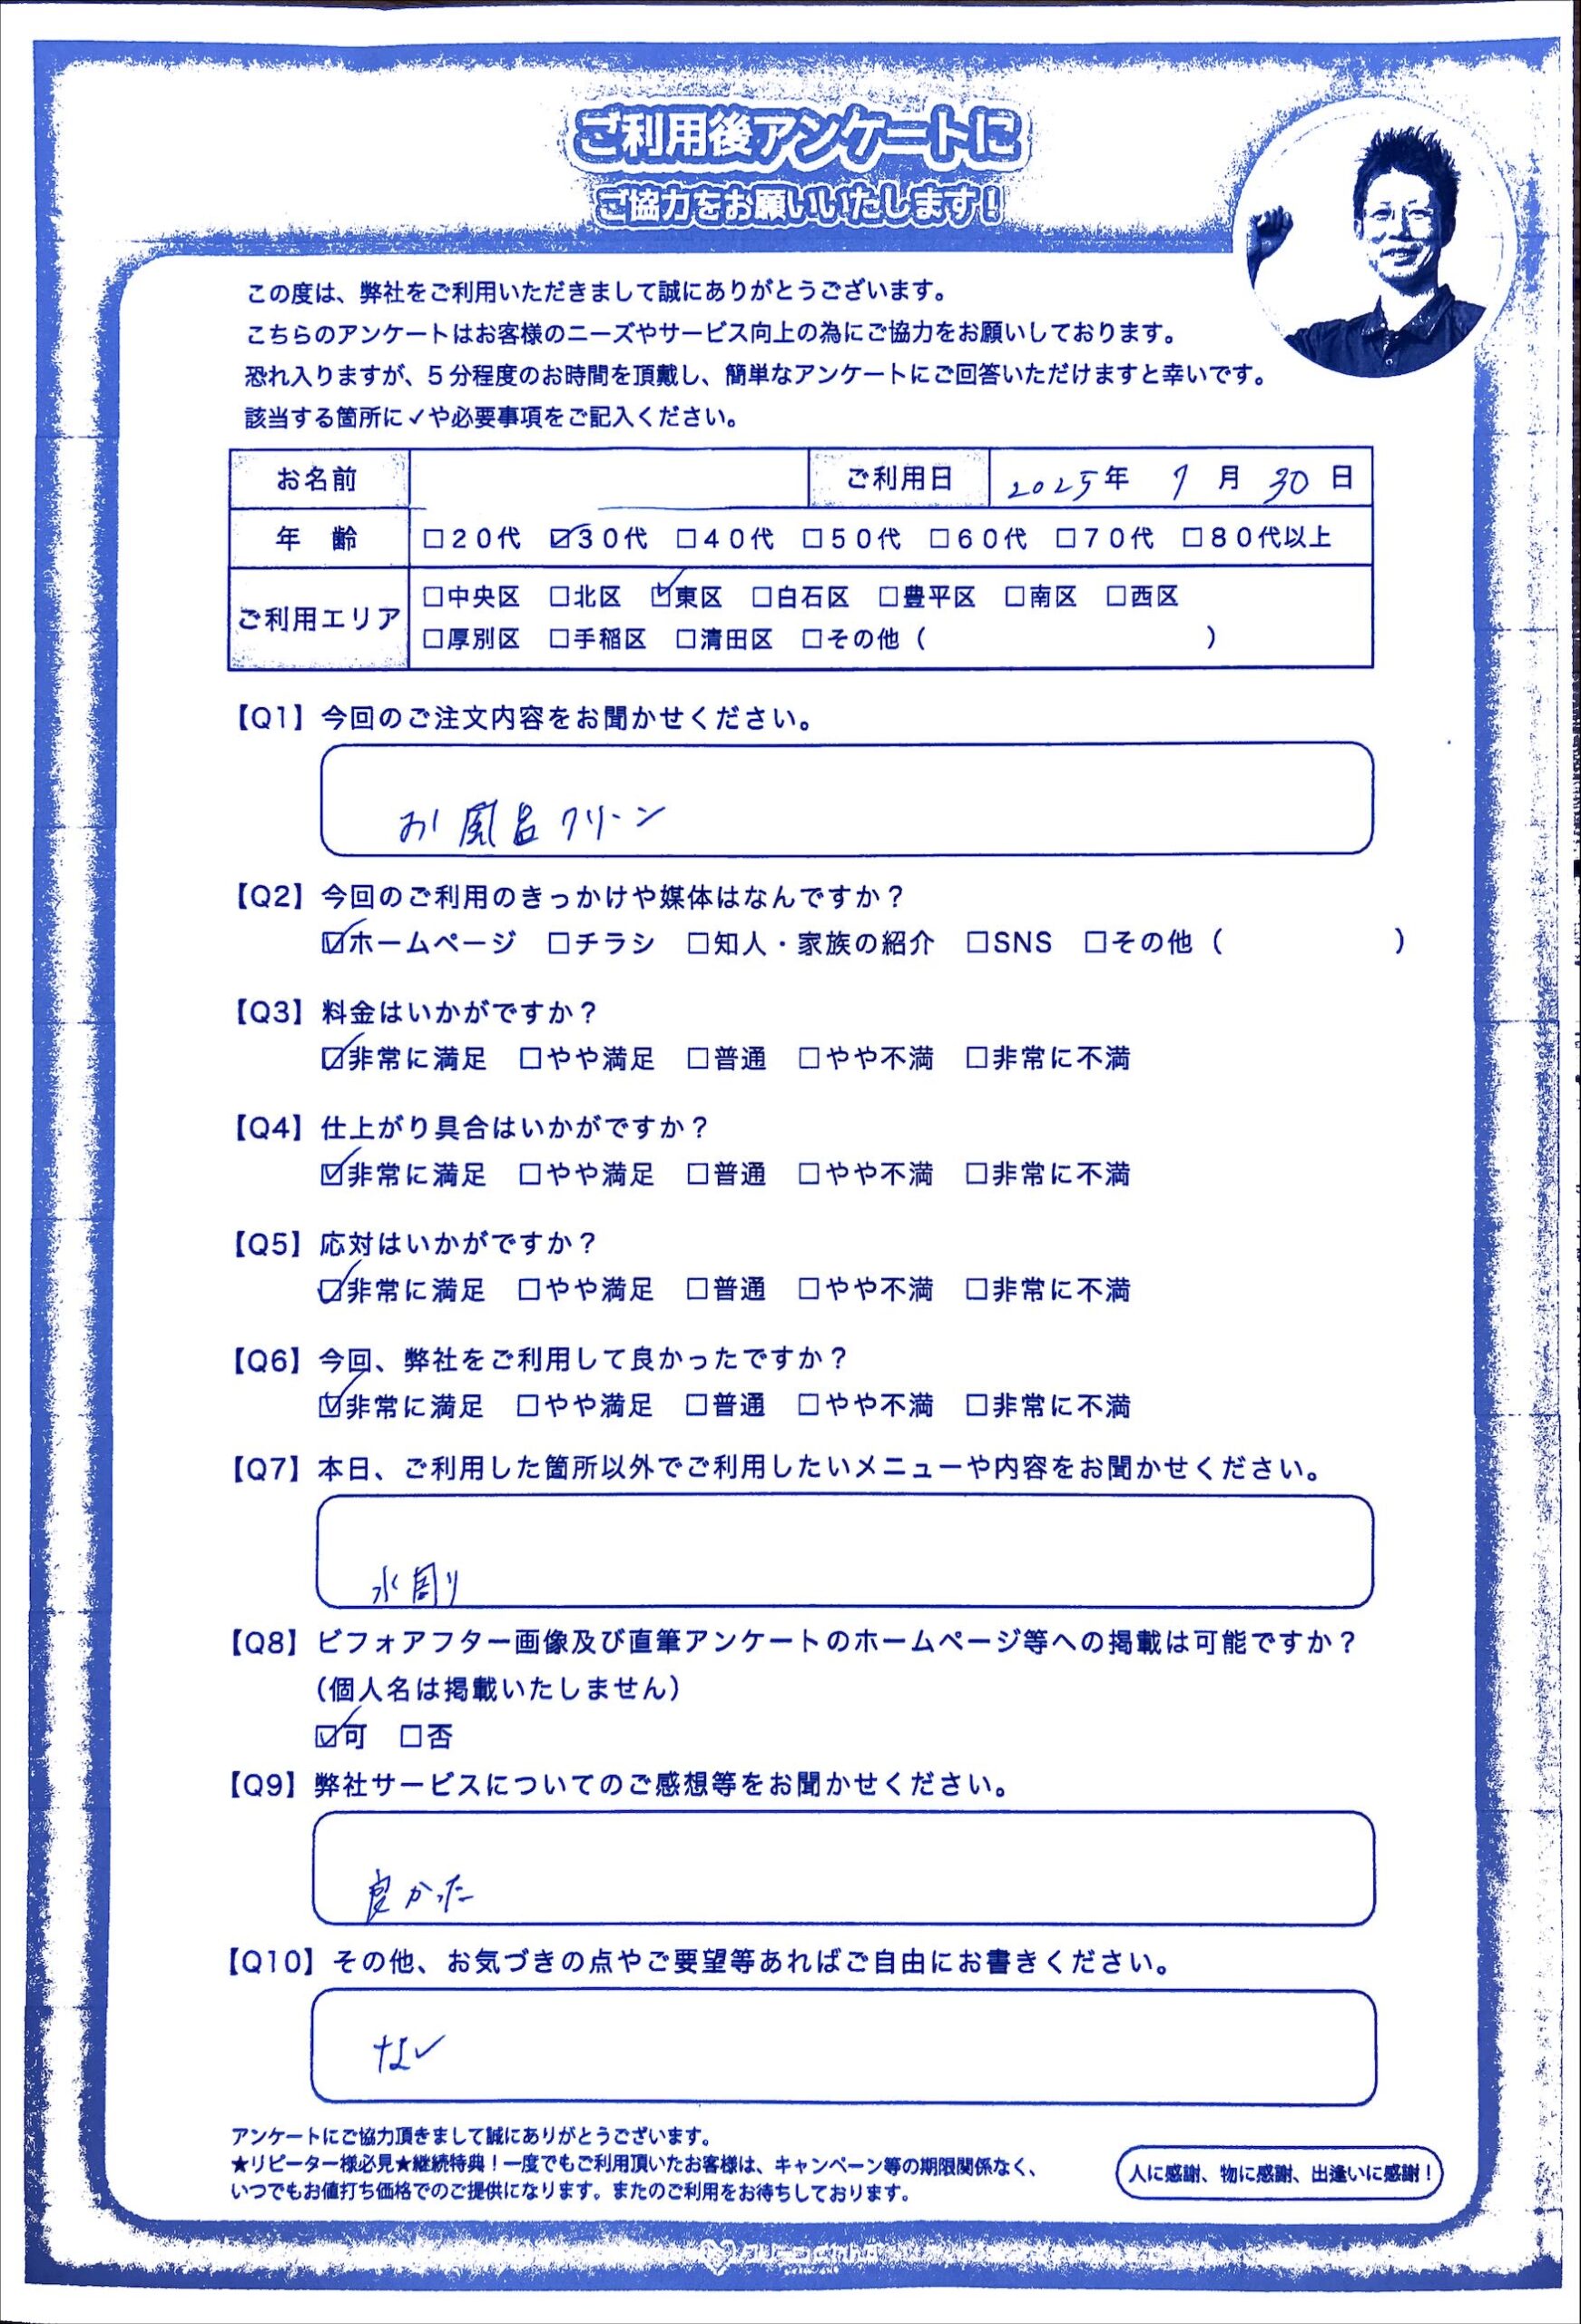 ご利用後アンケートに
ご協力をお願いいたします！
この度は、弊社をご利用いただきまして誠にありがとうございます。
こちらのアンケートはお客様のニーズやサービス向上の為にご協力をお願いしております。
恐れ入りますが、5分程度のお時間を頂戴し、簡単なアンケートにご回答いただけますと幸いです。
該当する箇所に✓や必要事項をご記入ください。
お名前 ご利用日 2025年 7月 30日
年 齢 □20代 ☑30代 □40代 □50代 □60代 □70代 □80代以上
ご利用エリア □中央区 □北区 ☑東区 □白石区 □豊平区 □南区 □西区
□厚別区 □手稲区 □清田区 □その他（ ）
【Q1】今回のご注文内容をお聞かせください。
お風呂クリーン
【Q2】今回のご利用のきっかけや媒体はなんですか？
☑ホームページ □チラシ □知人・家族の紹介 □SNS □その他（ ）
【Q3】料金はいかがですか？
☑非常に満足 □やや満足 □普通 □やや不満 □非常に不満
【Q4】仕上がり具合はいかがですか？
☑非常に満足 □やや満足 □普通 □やや不満 □非常に不満
【Q5】応対はいかがですか？
☑非常に満足 □やや満足 □普通 □やや不満 □非常に不満
【Q6】今回、弊社をご利用して良かったですか？
☑非常に満足 □やや満足 □普通 □やや不満 □非常に不満
【Q7】本日、ご利用した箇所以外でご利用したいメニューや内容をお聞かせください。
水周り
【Q8】ビフォアフター画像及び直筆アンケートのホームページ等への掲載は可能ですか？
（個人名は掲載いたしません）
☑可 □否
【Q9】弊社サービスについてのご感想等をお聞かせください。
良かった
【Q10】その他、お気づきの点やご要望等あればご自由にお書きください。
ない
アンケートにご協力頂きまして誠にありがとうございます。
★リピーター様必見★継続特典！一度でもご利用頂いたお客様は、キャンペーン等の期限関係なく、
いつでもお値打ち価格でのご提供になります。またのご利用をお待ちしております。
人に感謝、物に感謝、出逢いに感謝！